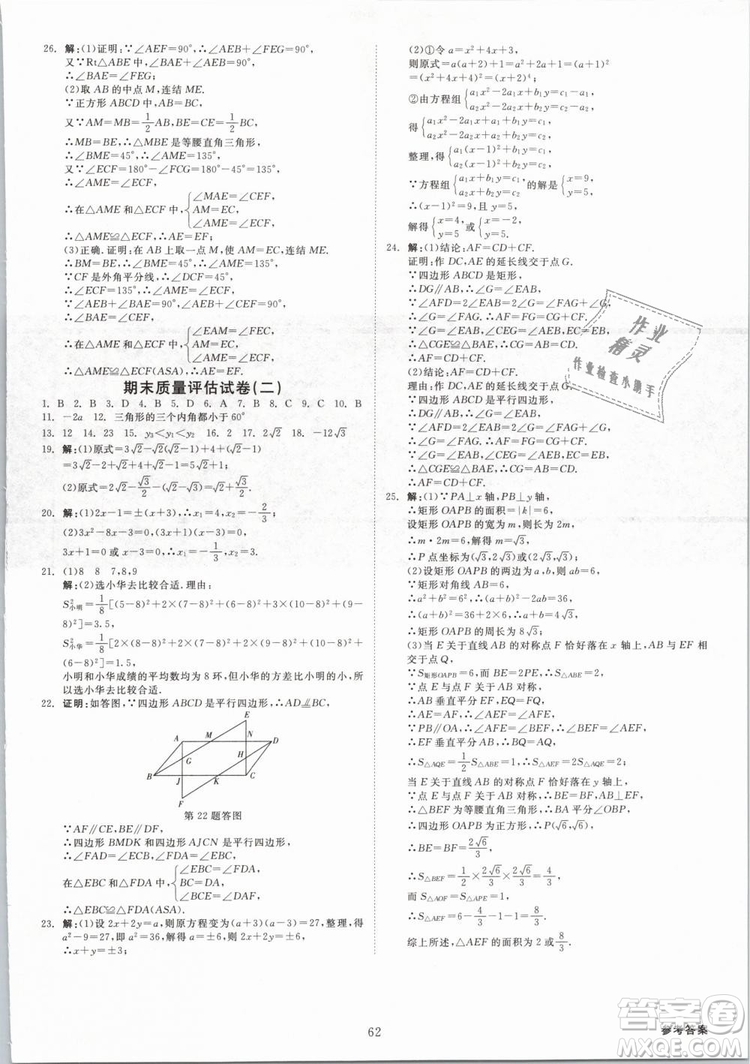 26. 解:(1)证明:∵∠AEF=90°,∴∠AEB+∠FEG=90°.
又∵Rt△ABE中,∠AEB+∠BAE=90°,
∴∠BAE=∠FEG;
(2)取AB的中点M,连结ME.
∵正方形ABCD中,AB=BC.
又∵AM=MB=1/2AB,BE=EC=1/2BC,
∴MB=BE,∴△MBE是等腰直角三角形,
∴∠BME=45°,∴∠AME=135°,
又∵∠ECF=180°-∠FCG=180°-45°=135°,
∴∠AME=∠ECF,
∴在△AME和△ECF中,{∠MAE=∠CEF, AM=EC, ∠AME=∠ECF,
∴△AME≌△ECF(ASA).
(3)正确.证明:在AB上取一点M,使AM=EC,连结ME.
∴BM=BE,∴∠BME=45°,∴∠AME=135°.
∵CF是外角平分线,∴∠DCF=45°,
∴∠ECF=135°,∴∠AME=∠ECF.
∵∠AEB+∠BAE=90°,∠AEB+∠CEF=90°,
∴∠BAE=∠CEF,
在△AME和△ECF中,{∠EAM=∠FEC, AM=EC, ∠AME=∠ECF,
∴△AME≌△ECF(ASA).
期末质量评估试卷(二)
1. B 2. B 3. D 4. C 5. D 6. A 7. B 8. C 9. C 10. B
11. -2a 12. 三角形的三个内角都小于60°
13. 12 14. 23 15. y₃<y₁<y₂ 16. 7 17. 2√2 18. -12√3
19. 解:(1)原式=3√2-√2(√2-1)-(√2-1)
=3√2-2+√2-√2+1
=3√2-1.
(2)原式=2√2-√2-√2/2=√2/2.
20. 解:(1)(3x-2)²=16,3x-2=±4,∴x₁=2,x₂=-2/3;
(2)(3x-2)(x-3)=0,
3x-2=0或x-3=0,∴x₁=2/3,x₂=3.
21. (1)8 8 7,8,9
解:(2)选小华去比较合适.理由:
S²小明=1/8[(5-8)²+2×(7-8)²+2×(8-8)²+(6-8)²+2×(10-8)²]=3,
S²小华=1/8[2×(7-8)²+2×(8-8)²+2×(9-8)²+(6-8)²+(10-8)²]=1.5,
小明和小华成绩的平均数均为8环,但小华的方差比小明的小,所以选小华去比较合适.
22. 证明:如答图,∵四边形ABCD是平行四边形,∴AD∥BC.
E
A M N D
G H
B J K C
F
第22题答图
∵AF∥CE,BE∥DF,
∴四边形BMDK和四边形AJCN是平行四边形,
∴∠FAD=∠ECB,∠ADF=∠EBC,
在△EBC和△FDA中,{∠EBC=∠FDA, BC=AD, ∠ECB=∠FAD,
∴△EBC≌△FDA(ASA).
23. 解:(1)设2x+2y=a,则原方程变为(a+3)(a-3)=27,整理,得
a²-9=27,即a²=36,解得a=±6,则2x+2y=±6,
∴x+y=±3;
(2)①令a=x²+4x+3,
则原式=a(a+2)+1=a²+2a+1=(a+1)²
=(x²+4x+4)²=(x+2)⁴;
②由方程组{a₁x²-2a₁x+b₁y=c₁-a₁, a₂x²-2a₂x+b₂y=c₂-a₂,
得{a₁(x²-2x+1)+b₁y=c₁, a₂(x²-2x+1)+b₂y=c₂,
整理,得{a₁(x-1)²+b₁y=c₁, a₂(x-1)²+b₂y=c₂,
∵方程组{a₁x+b₁y=c₁, a₂x+b₂y=c₂的解是{x=9, y=5,
∴(x-1)²=9,且y=5,
解得{x=4, y=5或{x=-2, y=5.
24. 解:(1)结论:AF=CD+CF.
证明:作DC,AE的延长线交于点G.
∵四边形ABCD是矩形,
∴DG∥AB,∴∠G=∠EAB.
∵∠AFD=2∠EAB=2∠G=∠FAG+∠G,
∴∠G=∠FAG,∴AF=FG=CF+CG.
∴AF=CD+CF.
(2)结论:AF=CD+CF.
理由:作DC,AE的延长线交于点G.
∵四边形ABCD是平行四边形,
∴DG∥AB,∴∠G=∠EAB.
∵∠AFD=2∠EAB=2∠G=∠FAG+∠G,
∴∠G=∠FAG,∴AF=FG=CF+CG.
∴△CEG≌△BEA,∴AB=CG.
∴AF=CD+CF.
25. 解:(1)∵PA⊥x轴,PB⊥y轴,
∴矩形OAPB的面积=|k|=6.
设矩形OAPB的宽为m,则长为2m,
∴m·2m=6,∴m=√3,
∴P点坐标为(√3,2√3)或(2√3,√3);
(2)设矩形OAPB的两边为a,b,则ab=6.
∵矩形对角线为6,
∴a²+b²=6²,
∴(a+b)²=36+2×6,
∴a+b=4√3,
∴矩形OAPB的周长为8√3;
∵S矩形OAPB=6,而BE=2PE,∴S△ABE=2.
∵点E与点F关于AB对称,
∴AB垂直平分EF,EQ=FQ,
∴AE=AF,∴∠AEF=∠AFE,
∵PB∥OA,∴∠AFE=∠BEF,
∴△BQE≌△AQF,∴S△AQE=1/2S△ABE=1.
∴S△AQE=S△AFQ=1,∴S△AEF=2.
当E关于直线AB的对称点F恰好落在y轴上,
∴△BEF为等腰直角三角形,∴BA平分∠OBP,
∴四边形OAPB为正方形,∴P(√6,√6),
∴BE=BF=2√6/3,
∴S△BEF=1/2×2√6/3×2√6/3=4/3,
∴S△AOF=S△APE=1,
∴S△AEF=6-4/3-1-1=8/3.
综上所述,△AEF的面积为2或8/3.
作业
精灵
作业检查小助手
62
参考答案
答案圈
MXQE.COM